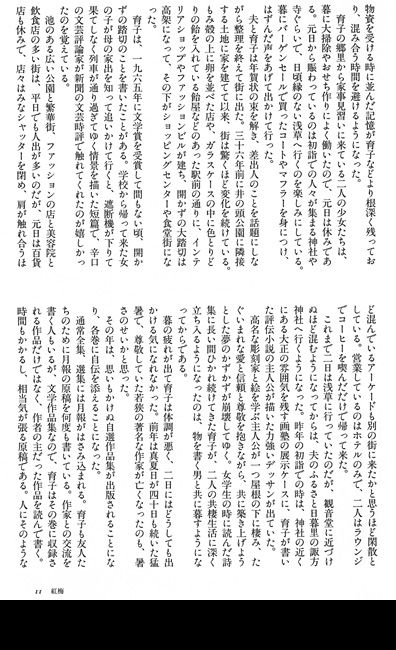 物資を受ける時に並んだ記憶が育子などより根深く残ってお
り、混み合う時間を避けるようになった。
　育子の郷里から家事見習いに来ている二人の少女たちは、
暮に大掃除やおせち作りによく働いたので、元日は休みであ
る。元日から賑わっているのは初詣での人々が集まる神社や
寺ぐらいで、日頃縁のない浅草へ行くのを楽しみにしている。
暮にバーゲンセールで買ったコートやマフラーを身につけ、
はずんだ声をあげて出かけて行った。
　夫と育子は年賀状の束を解き、差出人のことを話題にしな
がら整理を終えて街に出た。三十六年前に井の頭公園に隣接
する土地に家を建てて以来、街は驚くほど変化を続けている。
もみ殻の上に卵を並べた店や、ガラスケースの中に色とりど
りの飴を入れている飴屋などのあった駅前の通りに、インテ
リアショップやファッションビルが建ち、開かずの大踏切は
高架になって、その下がショッピングセンターや食堂街にな
った。
　育子は、一九六五年に文学賞を受賞して間もない頃、開か
ずの踏切のことを書いたことがある。学校から帰って来た女
の子が母の家出を知って追いかけて行くと、遮断機が下りて
果てしなく列車が通り過ぎてゆく情景を描いた短篇で、辛口
の文芸評論家が新聞の文芸時評で触れてくれたのが嬉しかっ
たのを覚えている。
　池のある広い公園と繁華街、ファッションの店と美容院と
飲食店の多い街は、平日でも人出が多いのだが、元日は百貨
店も休みで、店々はみなシャッターを閉め、肩が触れ合うほ
ど混んでいるアーケードも別の街に来たかと思うほど閑散と
している。営業しているのはホテルのみで、二人はラウンジ
でコーヒーを喫んだだけで帰って来た。
　これまで二日は浅草に行っていたのだが、観音堂に近づけ
ぬほど混むようになってからは、夫のふるさと日暮里の諏方
神社へ行くようになった。昨年の初詣での時は、神社の近く
にある大正の雰囲気を残す画塾の展示ケースに、育子が書い
た評伝小説の主人公が描いた力強いデッサンが出ていた。
　高名な彫刻家と絵を学ぶ主人公が一つ屋根の下に棲み、た
ぐいまれな愛と信頼と尊敬を抱きながら、共に築き上げよう
とした夢のかずかずが崩壊してゆく。女学生の時に読んだ詩
集に長い間ひかれ続けてきた育子が、二人の共棲生活に深く
立ち入るようになったのは、物を書く男と共に暮すようにな
ってからである。
　暮の疲れが出て育子は体調が悪く、二日にはどうしても出
かける気になれなかった。前年は真夏日が四十日も続いた猛
暑で、尊敬していた若狭の著名な作家が亡くなったのも、暑
さのせいかと思った。
　その年は、思いもかけぬ自選作品集が出版されることにな
り、各巻に自伝を添えることになった。
　通常全集、選集には月報がはさみ込まれる。育子も友人た
ちのために月報の原稿を何度も書いている。作家との交流を
書く人もいるが、文学作品集なので、育子はその巻に収録さ
れる作品だけではなく、作者の主だった作品を読んで書く。
時間もかかるし、相当気が張る原稿である。人にそのような
11　紅梅